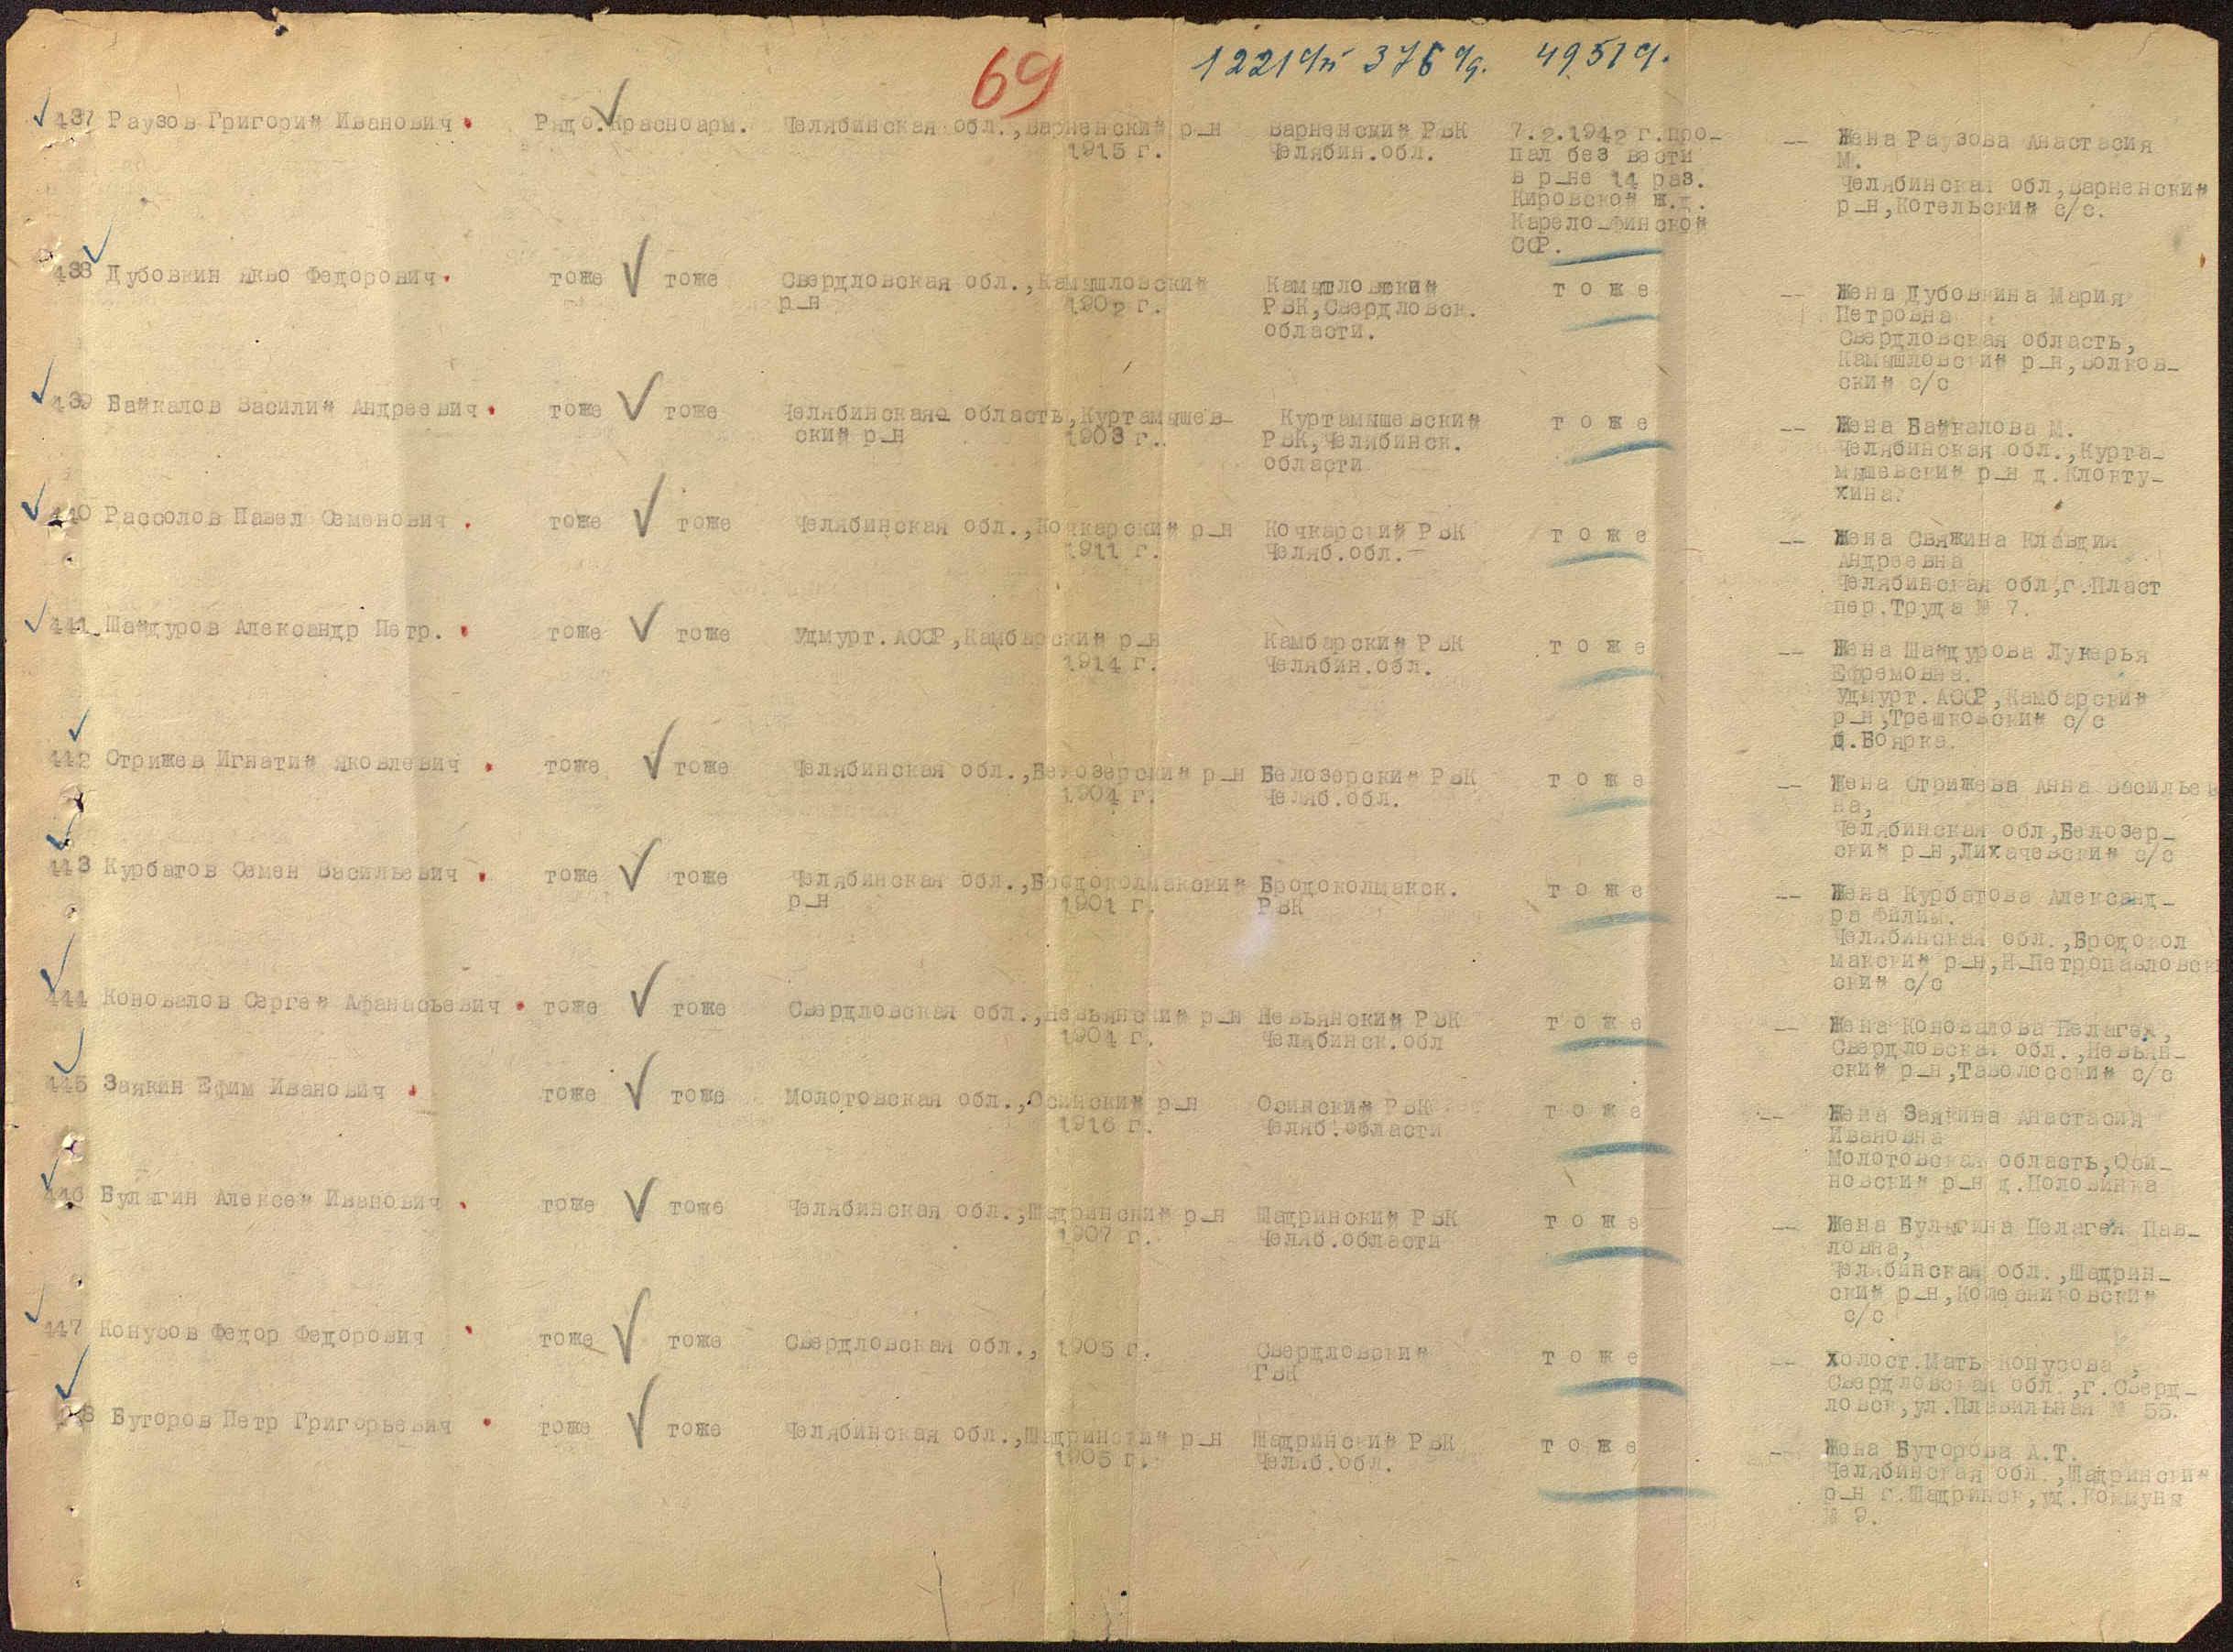 69
1221 376 4951
437 Раузов Григорий Иванович
Рядо. Красноарм.
Челябинская обл., Варненский р-н
1915 г.
Варненский РВК
Челябин.обл.
7.2.1942 г. про-
пал без вести
в р-не 14 раз.
Кировской ж.д.
Карело-Финской
ССР.
--
Жена Раузова Анастасия
М.
Челябинская обл, Варненский
р-н, Котельский с/с.
438 Дубовкин Якво Федорович
тоже тоже
Свердловская обл., Камышловский
р-н 1902 г.
Камышловский
РВК, Свердловск.
области.
тоже
--
Жена Дубовкина Мария
Петровна
Свердловская область,
Камышловский р-н, Волков-
ский с/с
439 Байкалов Василий Андреевич
тоже тоже
Челябинская область, Куртамышев-
ский р-н 1903 г.
Куртамышевский
РВК, Челябинск.
области
тоже
--
Жена Байкалова М.
Челябинская обл., Курта-
мышевский р-н д. Клокту-
хина.
440 Рассолов Павел Семенович
тоже тоже
Челябинская обл., Кочкарский р-н
1911 г.
Кочкарский РВК
Челяб.обл.-
тоже
--
Жена Свяжина Клавдия
Андреевна
Челябинская обл, г. Пласт
пер. Труда № 7.
441 Шайдуров Александр Петр.
тоже тоже
Удмурт. АССР, Камбарский р-н
1914 г.
Камбарский РВК
Челябин.обл.
тоже
--
Жена Шайдурова Лукерья
Ефремовна.
Удмурт. АССР, Камбарский
р-н, Трешковский с/с
д. Боярка.
442 Стрижев Игнатий Яковлевич
тоже тоже
Челябинская обл., Белозерский р-н
1904 г.
Белозерский РВК
Челяб.обл.
тоже
--
Жена Стрижева Анна Васильев
на,
Челябинская обл, Белозер-
ский р-н, Лихачевский с/с
443 Курбатов Семен Васильевич
тоже тоже
Челябинская обл., Бродоколмакский
р-н 1901 г.
Бродоколмакск.
РВК
тоже
--
Жена Курбатова Александ-
ра Филим.
Челябинская обл., Бродокол
макский р-н, Н-Петропавловск
ский с/с
444 Коновалов Сергей Афанасьевич
тоже тоже
Свердловская обл., Невьянский р-н
1904 г.
Невьянский РВК
Челябинск.обл
тоже
--
Жена Коновалова Пелагея,
Свердловская обл., Невьян-
ский р-н, Таволосский с/с
445 Заякин Ефим Иванович
тоже тоже
Молотовская обл., Осинский р-н
1916 г.
Осинский РВК
Челяб.области
тоже
--
Жена Заякина Анастасия
Ивановна
Молотовская область, Оси-
новский р-н д. Половинка
446 Булыгин Алексей Иванович
тоже тоже
Челябинская обл., Шадринский р-н
1907 г.
Шадринский РВК
Челяб.области
тоже
--
Жена Булыгина Пелагея Пав-
ловна,
Челябинская обл., Шадрин-
ский р-н, Колесниковский
с/с
447 Конусов Федор Федорович
тоже тоже
Свердловская обл., 1905 г.
Свердловский
ГВК
тоже
--
Холост. Мать Конусова,
Свердловская обл., г. Сверд-
ловск, ул. Плавильная № 55.
448 Буторов Петр Григорьевич
тоже тоже
Челябинская обл., Шадринский р-н
1905 г.
Шадринский РВК
Челяб.обл.
тоже
-
Жена Буторова А.Т.
Челябинская обл., Шадринский
р-н г. Шадринск, ул. Коммуны
№ 9.